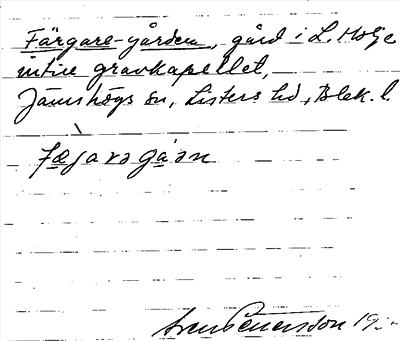 Färgare-gården, gård i L. Holje
intill gravkapellet,
Jämshögs sn, Listers hd, Blek. l.
Sven Petersson 19